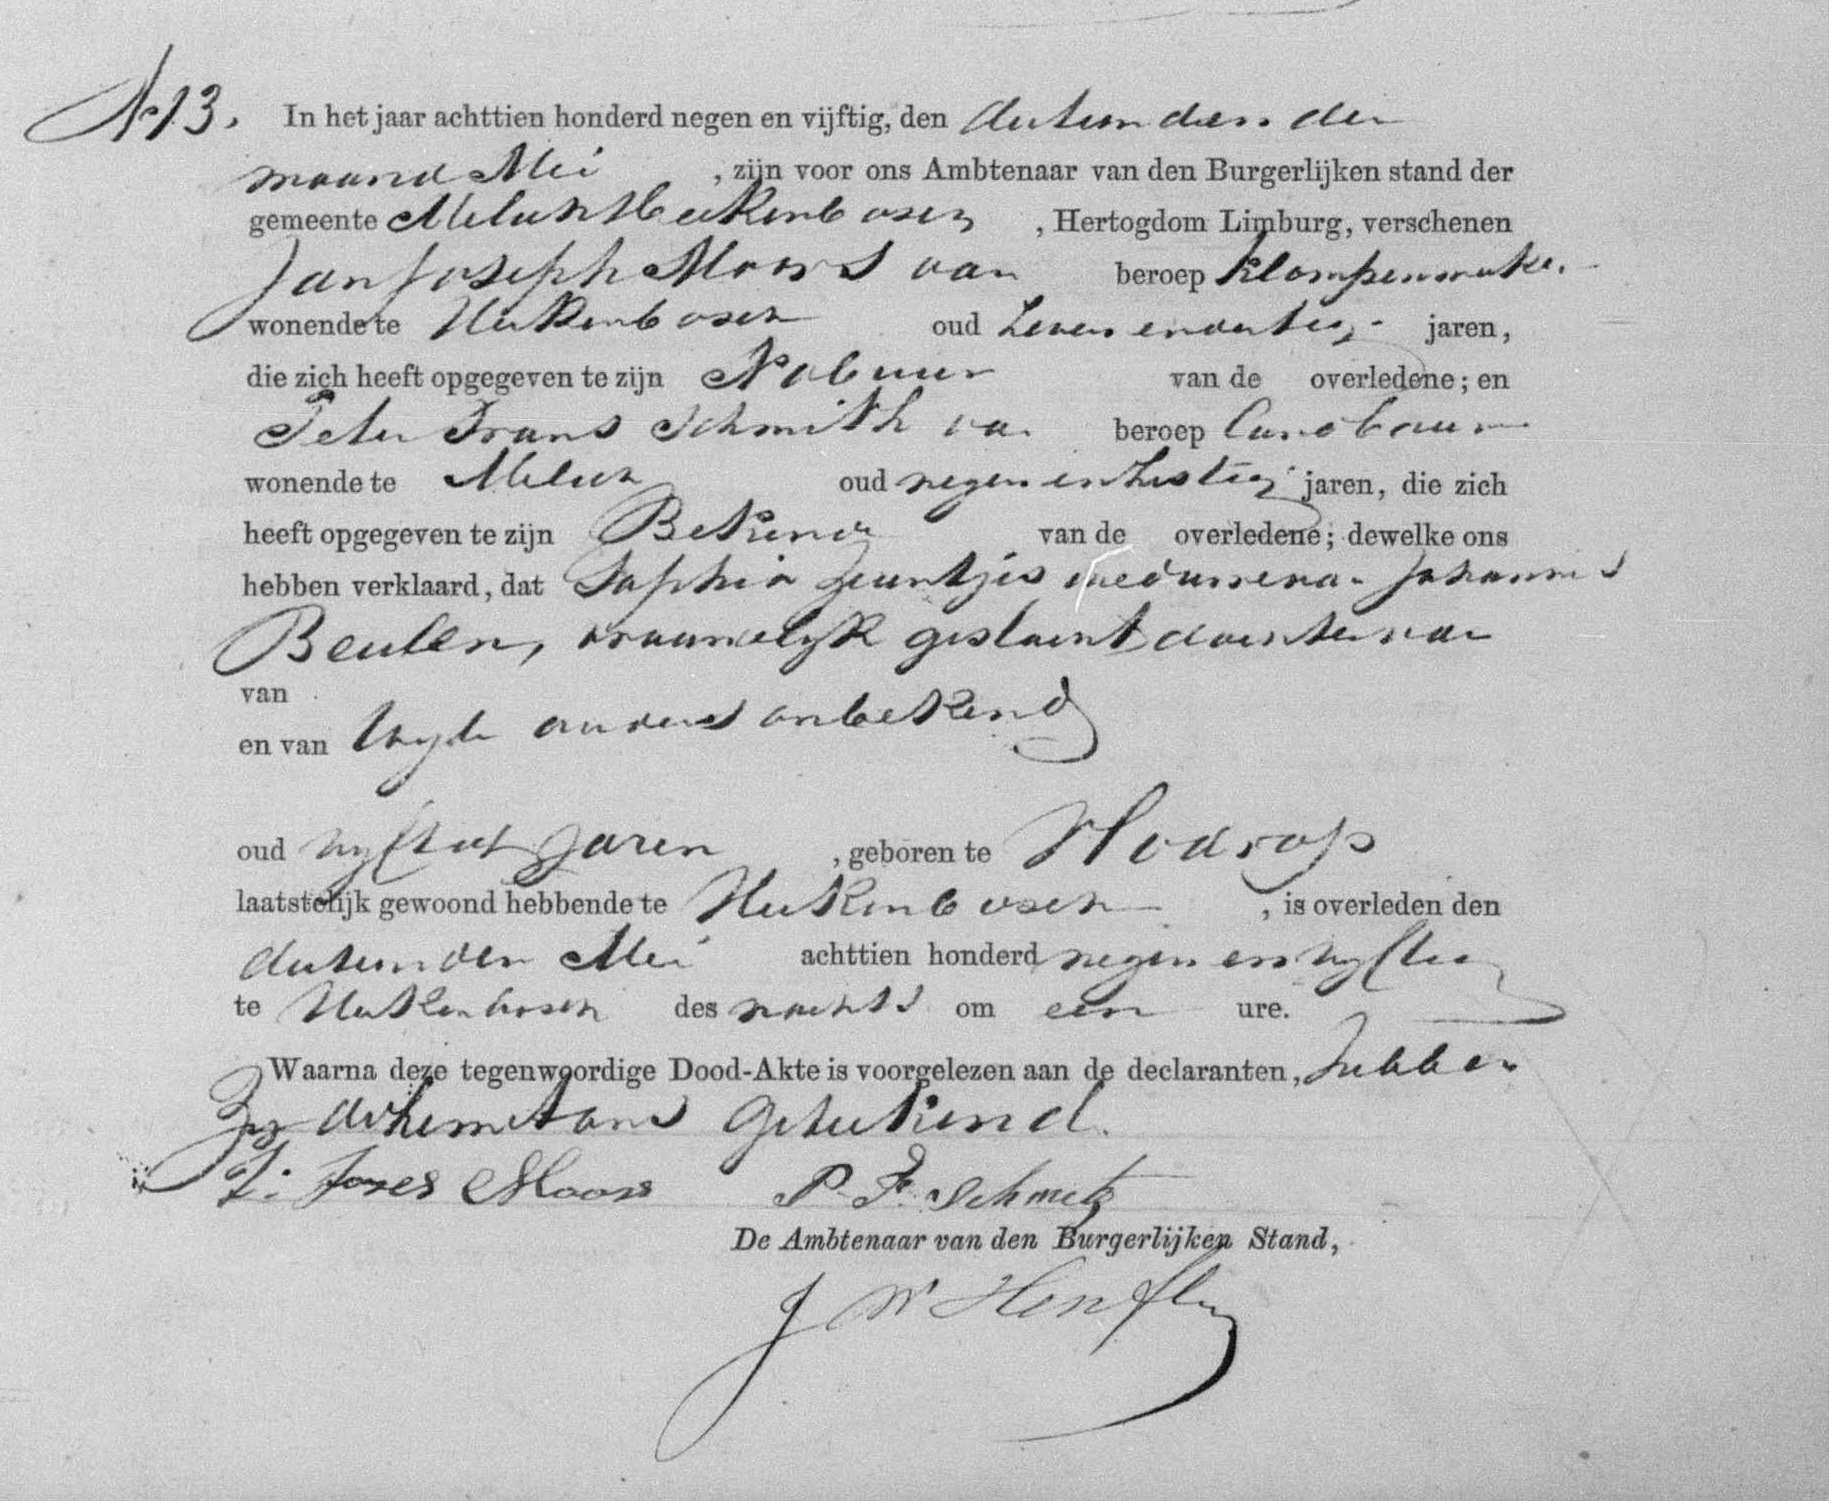 No 13. In het jaar achttien honderd negen en vijftig, den dertienden der
maand Mei, zijn voor ons Ambtenaar van den Burgerlijken stand der
gemeente Melick Herkenbosch, Hertogdom Limburg, verschenen
Jan Joseph Moors van beroep klompenmaker
wonende te Herkenbosch oud zeven en dertig jaren,
die zich heeft opgegeven te zijn Nabuur van de overledene; en
Peter Frans Schmith van beroep Landbouwer
wonende te Melick oud negen en zestig jaren, die zich
heeft opgegeven te zijn Bekende van de overledene; dewelke ons
hebben verklaard, dat Sophia weduwe van Johannes
Beulen, dochter van
van
en van wyders onbekend
oud vyftich jaren, geboren te Vlodrop
laatstelijk gewoond hebbende te Herkenbosch, is overleden den
dertienden Mei achttien honderd negen en vyftig
te Herkenbosch des nachts om een ure.
Waarna deze tegenwoordige Dood-Akte is voorgelezen aan de declaranten, hebben
Zy dezelve met ons geteekend.
Moors P. F. Schmitz
De Ambtenaar van den Burgerlijken Stand,
J W